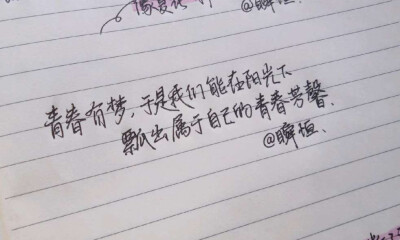 @瞬恒
青春有梦,于是我们能在阳光下
飘出属于自己的青春芳馨.
@瞬恒、